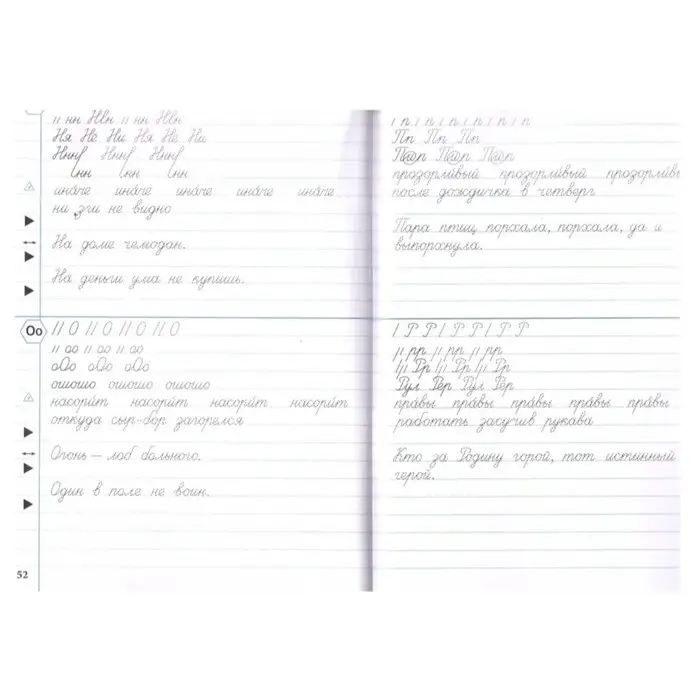 нн Нвн нн Нвн
Ня Не Ни Ня Не Ни
Ннн Ннн Ннн
нн нн нн
ина́че ина́че ина́че ина́че ина́че
ни зги не видно
На доме чемодан.
На деньги ума не купишь.
Оо
О О О О
оо оо оо
оОо оОо оОо
ошошо ошошо ошошо
насори́т насори́т насори́т насори́т
откуда сыр-бор загорелся
Огонь – лоб больного.
Один в поле не воин.
52
п п п п п п
Пп Пп Пп
прозорли́вый прозорли́вый прозорли́вы
после дождичка в четверг
Пара птиц порхала, порхала, да и
выпорхнула.
Р Р Р Р Р Р
рр рр рр
Рр Рр Рр
Рул Рер Рул Рер
пра́вы пра́вы пра́вы пра́вы пра́вы
работать засучив рукава
Кто за Родину горой, тот истинный
герой.